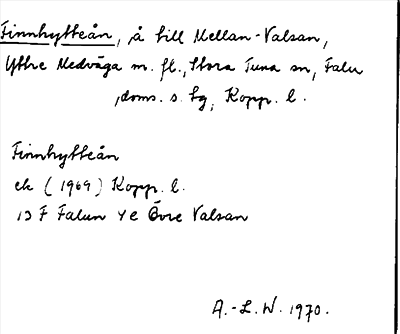 Finnhytteån, å till Mellan-Valsan,
Yttre Medväga m. fl., Stora Tuna sn, Falu
doms. s. tg, Kopp. l.
Finnhytteån
ek (1969) Kopp. l.
13 F Falun 4 e Övre Valsan
A.-L. W. 1970.